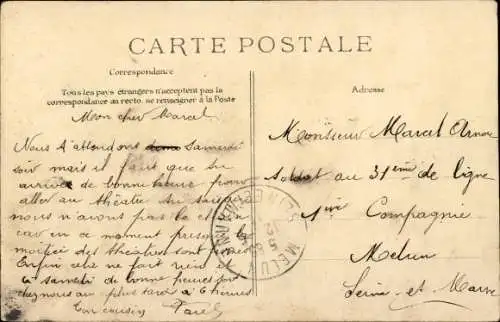 CARTE POSTALE
Correspondance
Tous les pays étrangers n'acceptent pas la
correspondance au recto, se renseigner à la Poste
Adresse
Mon cher Marcel
Nous t'attendons samedi
soir mais il faut que tu
arrive de bonne heure pour
aller au théâtre tu sais
nous n'avons pas le
car en ce moment presque la
moitiée des théâtres sont
Enfin cela ne fait rien
a samedi de bonne heure
chez nous au plus tard à 6 heures
Ton cousin
Monsieur Marcel
Soldat au 31ème de ligne
1ère Compagnie
Melun
Seine-et-Marne
MELUN